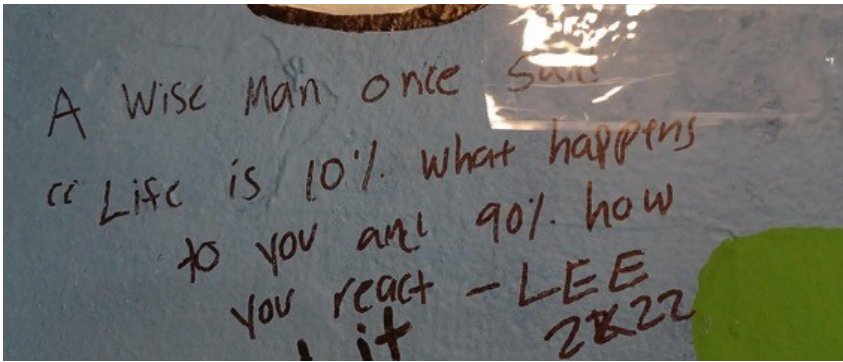 A Wise Man once said
“Life is 10% what happens
to you and 90% how
you react - LEE
it 2K22